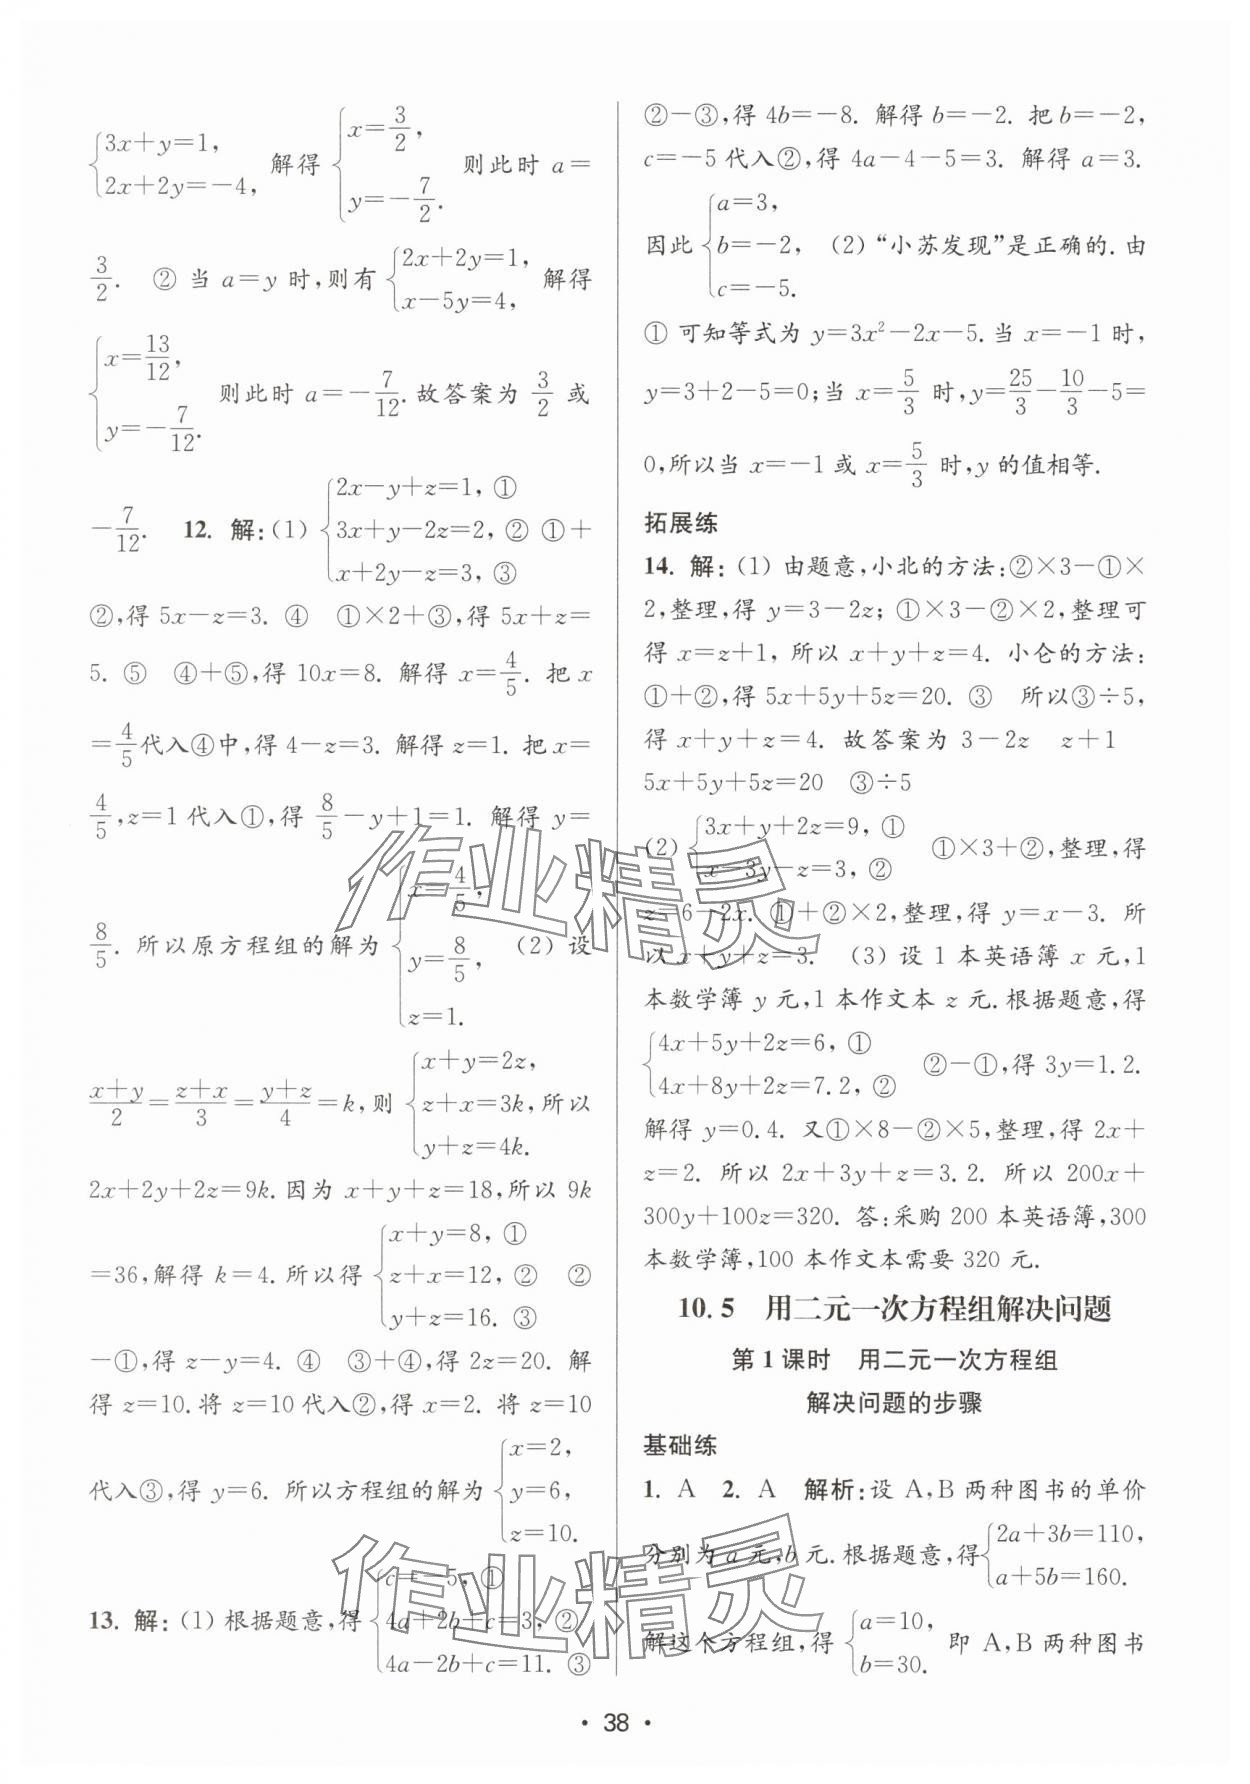 {3x+y=1, 2x+2y=-4, 解得 {x=3/2, y=-7/2. 则此时 a=
3/2. ② 当 a=y 时,则有 {2x+2y=1, x-5y=4, 解得
{x=13/12, y=-7/12. 则此时 a=-7/12.故答案为 3/2 或
-7/12. 12. 解:(1) {2x-y+z=1, ① 3x+y-2z=2, ② x+2y-z=3, ③ ①+
②,得 5x-z=3. ④ ①×2+③,得 5x+z=
5. ⑤ ④+⑤,得 10x=8. 解得 x=4/5. 把 x
=4/5代入④中,得 4-z=3. 解得 z=1. 把 x=
4/5,z=1 代入①,得 8/5-y+1=1. 解得 y=
8/5. 所以原方程组的解为 {x=4/5, y=8/5, z=1. (2) 设
(x+y)/2=(z+x)/3=(y+z)/4=k,则 {x+y=2z, z+x=3k, y+z=4k. 所以
2x+2y+2z=9k.因为 x+y+z=18,所以 9k
=36,解得 k=4.所以得 {x+y=8, ① z+x=12, ② y+z=16. ③ ②
-①,得 z-y=4. ④ ③+④,得 2z=20. 解
得 z=10.将 z=10 代入②,得 x=2. 将 z=10
代入③,得 y=6. 所以方程组的解为 {x=2, y=6, z=10.
13. 解:(1) 根据题意,得 {c=-5, ① 4a+2b+c=3, ② 4a-2b+c=11. ③
②-③,得 4b=-8. 解得 b=-2. 把 b=-2,
c=-5 代入②,得 4a-4-5=3. 解得 a=3.
因此 {a=3, b=-2, c=-5. (2) “小苏发现”是正确的.由
① 可知等式为 y=3x²-2x-5.当 x=-1 时,
y=3+2-5=0;当 x=5/3 时,y=25/3-10/3-5=
0,所以当 x=-1 或 x=5/3 时,y 的值相等.
拓展练
14. 解:(1) 由题意,小北的方法:②×3-①×
2,整理,得 y=3-2z; ①×3-②×2,整理可
得 x=z+1, 所以 x+y+z=4. 小仑的方法:
①+②,得 5x+5y+5z=20. ③ 所以③÷5,
得 x+y+z=4. 故答案为 3-2z z+1
5x+5y+5z=20 ③÷5
(2) {3x+y+2z=9, ① x-3y-z=3, ② ①×3+②,整理,得
z=6-2x. ①+②×2,整理,得 y=x-3. 所
以 x+y+z=3. (3) 设 1 本英语簿 x 元,1
本数学簿 y 元,1 本作文本 z 元.根据题意,得
{4x+5y+2z=6, ① 4x+8y+2z=7.2, ② ②-①,得 3y=1.2.
解得 y=0.4. 又①×8-②×5,整理,得 2x+
z=2. 所以 2x+3y+z=3.2. 所以 200x+
300y+100z=320. 答:采购 200 本英语簿,300
本数学簿,100 本作文本需要 320 元.
10.5 用二元一次方程组解决问题
第 1 课时 用二元一次方程组
解决问题的步骤
基础练
1. A 2. A 解析:设 A,B 两种图书的单价
分别为 a 元,b 元.根据题意,得{2a+3b=110, a+5b=160.
解这个方程组,得 {a=10, b=30. 即 A,B 两种图书
· 38 ·
作业精灵
作业精灵